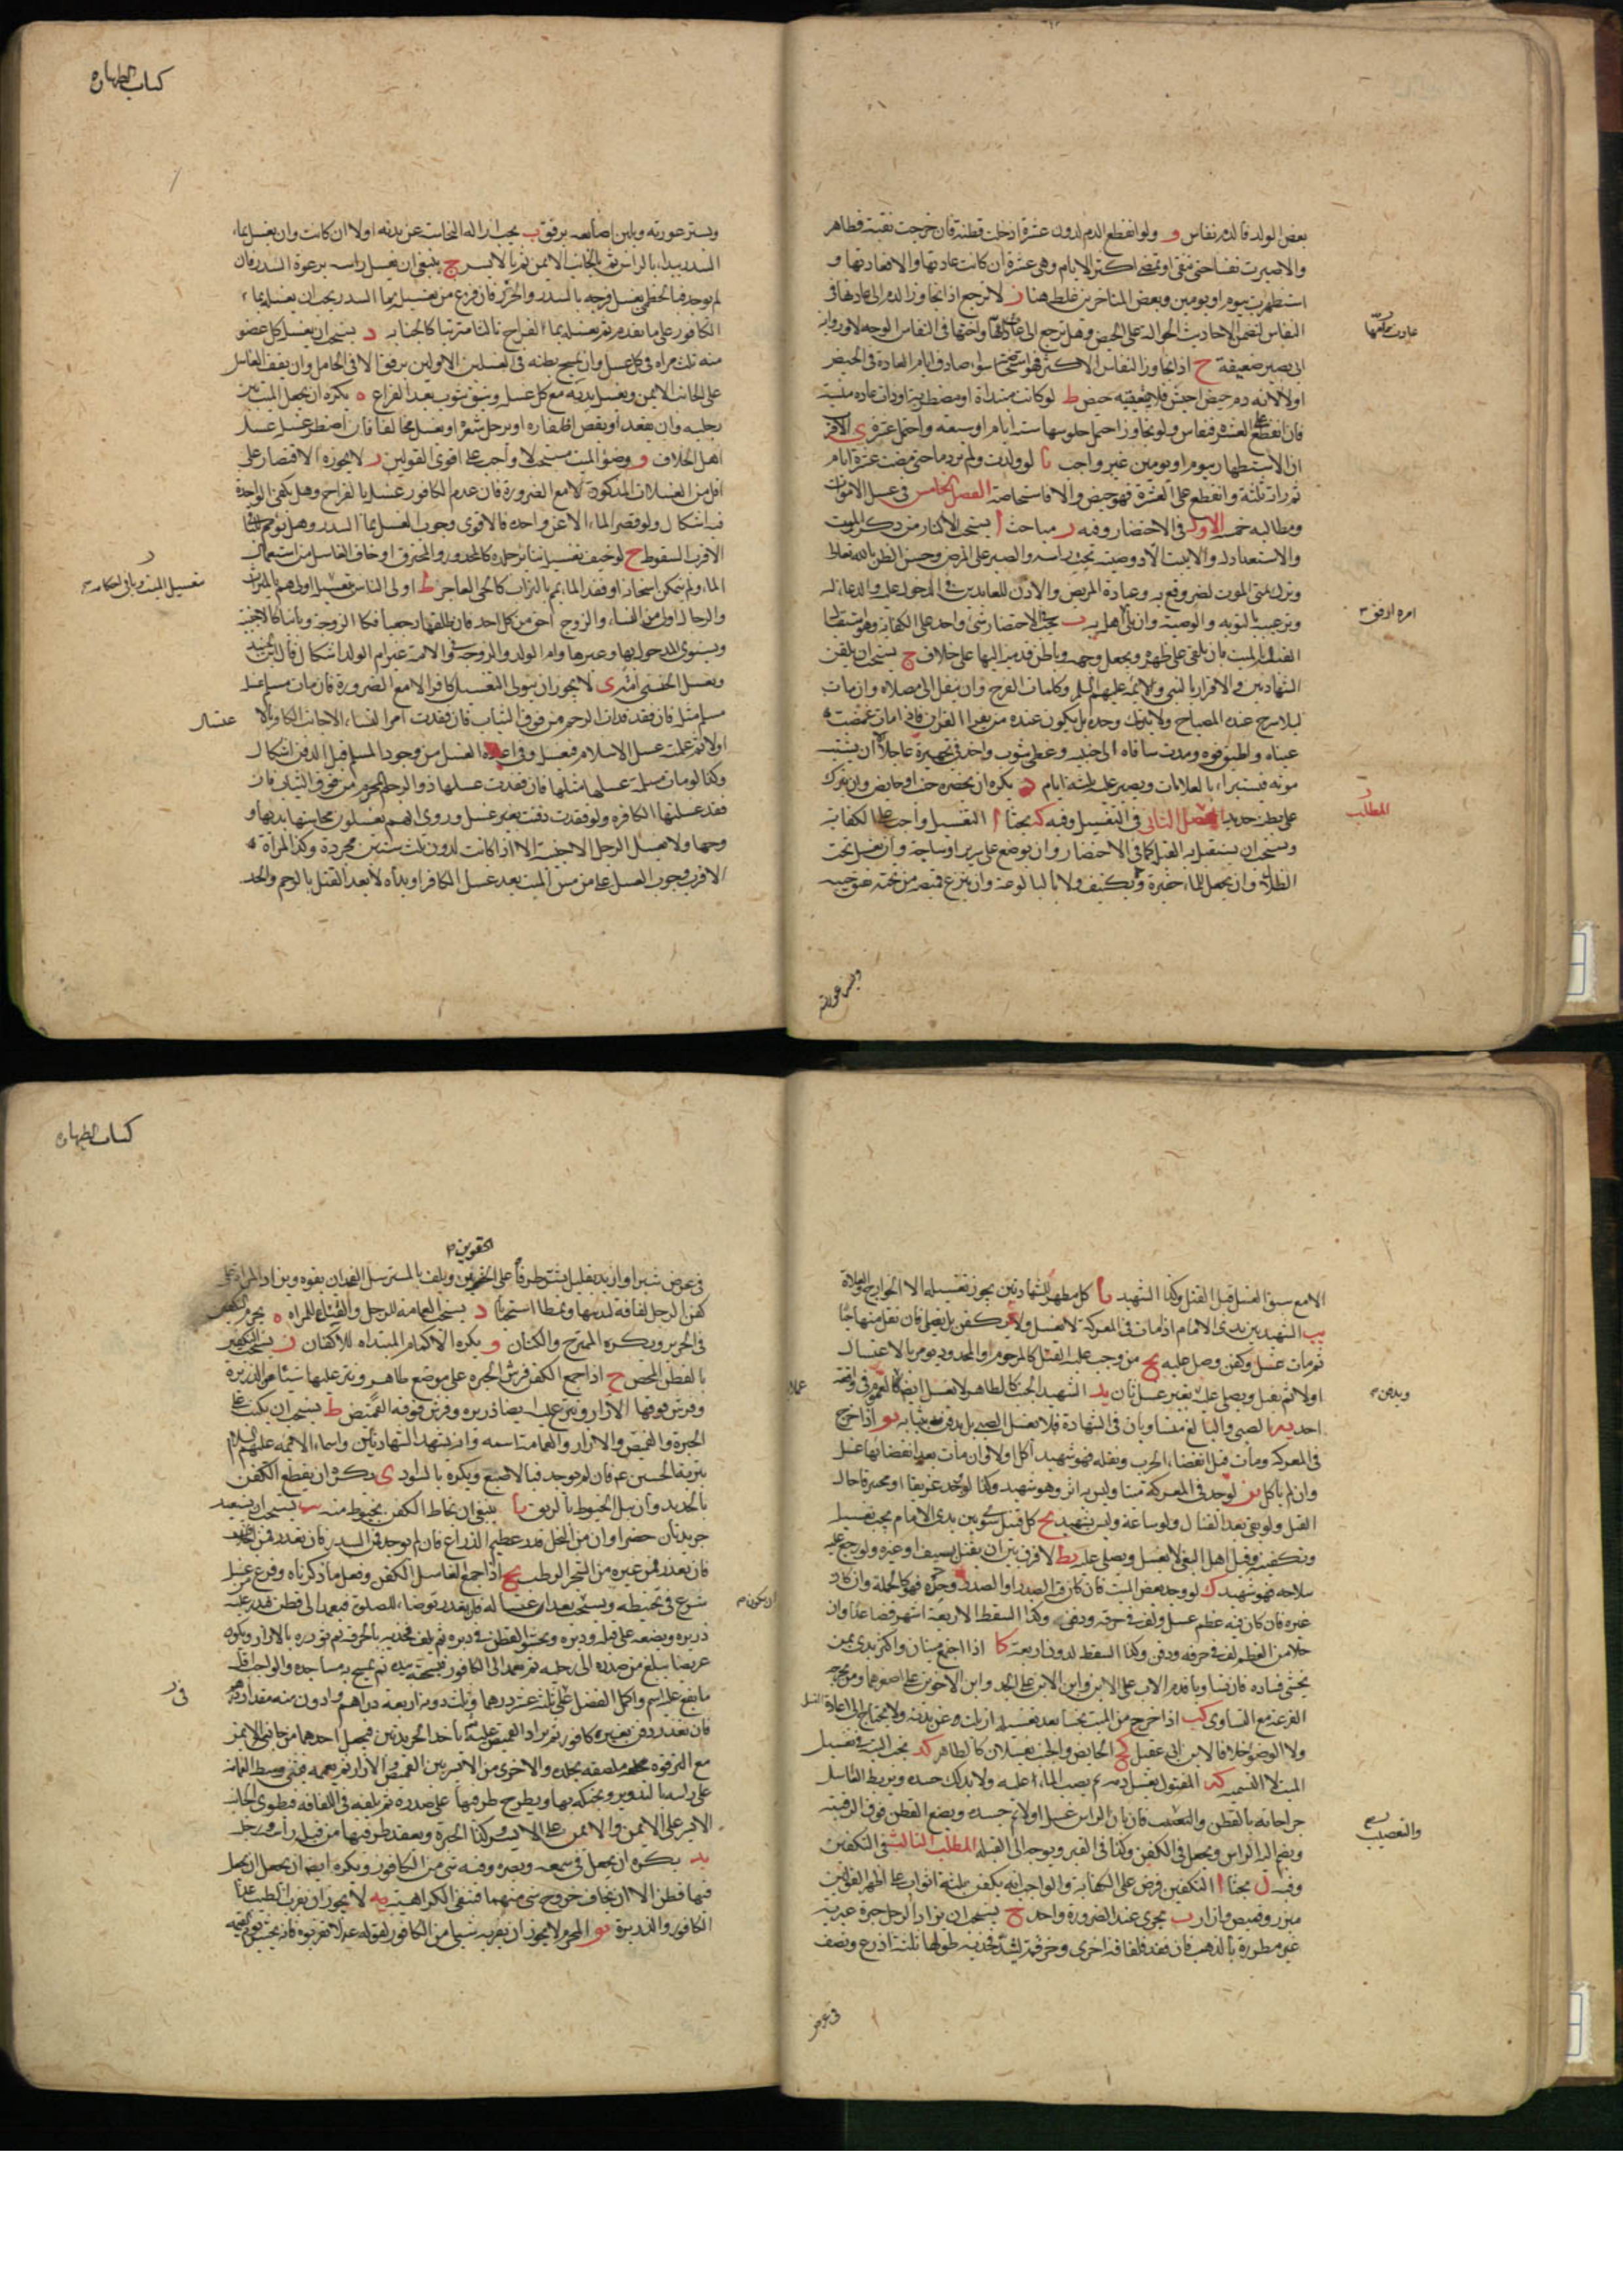 بعض الولد فالدم نفاس و ولو انقطع الدم لدون عشرة ادخلت قطنة فان خرجت نقية فطاهر
والا صبرت نفساء حتى تنقى او تمضى اكثر الايام وهى عشرة ان كانت عادتها والا فعادتها و
استظهرت بيوم او يومين وبعض المتاخرين غلط هنا ز لا ترجع اذا تجاوز الدم الى عادتها فى
النفاس لتضمن الاحاديث الحوالة على الحيض وهل ترجع الى عادة امها واختها فى النفاس الوجه لا ورواية
عادت امها
ابى بصير ضعيفة ح اذا تجاوز النفاس الاكثر فهو استحاضة سواء صادف ايام العادة فى الحيض
اولا لانه دم حيض احتبس فلا يتعقبه حيض ط لو كانت مبتداة او مضطربة او ذات عادة منسية
فان انقطع على العشرة فنفاس ولو تجاوز احتمل جلوسها ستة ايام او سبعة واحتمل عشرة ى الاقرب
ان الاستظهار بيوم او يومين غير واجب يا لو ولدت ولم تر دما حتى مضت عشرة ايام
ثم رات ثلثة وانقطع على العشرة فهو حيض والا فاستحاضة الفصل الخامس فى غسل الاموات
ومطالبه خمسة الاول فى الاحتضار وفيه د مباحث ا يستحب الاكثار من ذكر الموت
والاستعداد له والا يبيت الا ووصيته تحت راسه والصبر على المرض وحسن الظن بالله تعالى
وترك تمنى الموت لضر وقع به وعيادة المريض والاذن للعائدين فى الدخول عليه والدعاء له
وترغيبه التوبة والوصية وان يلى اهله به ب يجب فى الاحتضار شئ واحد على الكفاية وهو استقبال
القبلة بالميت بان يلقى على ظهره ويجعل وجهه وباطن قدميه اليها على خلاف ج يستحب ان يلقن
الشهادتين والاقرار بالنبى والائمة عليهم السلم وكلمات الفرج وان ينقل الى مصلاه وان مات
ليلا سرج عنده المصباح ولا يترك وحده بل يكون عنده من يقرا القران فاذا مات غمضت
عيناه واطبق فوه ومدت ساقاه الى جنبيه وغطى بثوب واخذ فى تجهيزه عاجلا الا ان يشتبه
موته فيستبرا بالعلامات ويصبر عليه ثلثة ايام د يكره ان يحضره جنب او حايض وان يترك
على بطنه حديد الثانى فى التغسيل وفيه كه بحثا ا التغسيل واجب على الكفاية
المطلب
ويستحب ان يستقبل به القبلة كما فى الاحتضار وان يوضع على سرير او ساجة وان يغسل تحت
الظلال وان يجعل للماء حفيرة ويكره الكنيف ولا بالبالوعة وان ينزع قميصه من تحته بفتق جيبه
وبستر عورته
كتاب الطهاره
ويستر عورته ويلين اصابعه برفق ب يجب ازالة النجاسة عن بدنه اولا ان كانت وان يغسل بماء
السدر يبدا بالراس ثم بالجانب الايمن ثم بالايسر ج ينبغى ان يغسل راسه برغوة السدر فان
لم يوجد فبالخطمى ويغسل فرجه بالسدر والحرض فاذا فرغ من غسله بماء السدر يجب ان يغسله بماء
الكافور على ما تقدم ثم يغسله بماء القراح ثالثا مرتبا كالجنابة د يستحب ان يغسل كل عضو
منه ثلث مراة فى كل غسل وان يمسح بطنه فى الغسلين الاولين برفق الا فى الحامل وان يقف الغاسل
على الجانب الايمن ويغسل يديه مع كل غسلة وينشف بثوب بعد الفراغ ه يكره ان يجعل الميت بين
رجليه وان يقعد او يقص اظفاره او يرجل شعره او يغسل مخالفا فان اضطر غسله غسل
اهل الخلاف و وضوء الميت مستحب لا واجب على اقوى القولين ز لا يجوز الاقتصار على
اقل من الغسلات المذكورة الا مع الضرورة فان عدم الكافور غسل بالقراح وهل يكفى الواحدة
فيه اشكال ولو قصر الماء الا عن واحدة فالاقوى وجوب الغسل بماء السدر وهل تيمم
الاقرب السقوط ح لو خيف تغسيله تناثر جلده كالمجدور والمحترق او خاف الغاسل من استعمال
الماء ولم يتمكن اسخانه او فقد الماء يمم بالتراب كالحى العاجز ط اولى الناس بتغسيله اولاهم بالميراث
تغسيل الميت وباقى احكامه
والرجال اولى من النساء والزوج احق من كل احد فان طلقها رجعيا فكا الزوجة وباينا كالاجنبية
ويستوى المدخول بها وغيرها وام الولد والمزوجة والامة غير ام الولد اشكال
ويغسل الخنثى امته ى لا يجوز ان يتولى التغسيل كافر الا مع الضرورة فان مات مسلم غسله
مسلم مثله فان فقد فذات الرحم من فوق الثياب فان فقدت امر النساء الاجانب الكافر بالا
غتسال
اولا ثم علمته غسل الاسلام فيغسله وفى اعادة الغسل من وجود المسلم قبل الدفن اشكال
وكذا لو ماتت مسلمة غسلها مثلها فان فقدت غسلها ذو الرحم المحرم من فوق الثياب فان
فقد غسلتها الكافرة ولو فقدت دفنت بغير غسل وروى انهم يغسلون محاسنها يديها و
وجهها ولا يغسل الرجل الاجنبية الا اذا كانت لدون ثلث سنين مجردة وكذا المراة
الاقرب وجوب الغسل على من مس الميت بعد غسل الكافر او يداه لا بعد القتل بالرجم والحد
الا مع سبق الغسل قبل القتل وكذا الشهيد يا كل مظهر للشهادتين يجوز تغسيله الا الخوارج والغلاة
يب الشهيد بين يدى الامام اذا مات فى المعركة لا يغسل ولا يكفن بل يصلى فان نقل منها حيا
ثم مات غسل وكفن وصلى عليه يج من وجب عليه القتل كالمرجوم او المحدود يومر بالاغتسال
اولا ثم يقتل ويصلى عليه بغير غسل ثان يد الشهيد الجنب كالطاهر لا يغسل ايضا للعموم فى واقعة
احد يه الصبى والبالغ متساويان فى الشهادة فلا يغسل الصبى بل يدفن بثيابه يو اذا خرج
فى المعركة ومات قبل انقضاء الحرب ونقله فهو شهيد اكل او لا وان مات بعد انقضائها غسل
وان لم ياكل يز لو وجد فى المعركة ميتا وليس به اثر وهو شهيد وكذا لو وجد غريقا او محترقا حال
القتل ولو بقى بعد القتال ولو ساعة وليس بشهيد يح كل قتيل سوى من بين يدى الامام يجب تغسيله
وتكفينه وقتيل اهل البغى لا يغسل ويصلى عليه يط لا فرق بين ان يقتل بسيف او غيره ولو رجع عليه
سلاحه فهو شهيد ك لو وجد بعض الميت فان كان فيه الصدر او الصدر وحده فهو كالجملة وان كان
غيره فان كان فيه عظم غسل ولف فى خرقة ودفن وكذا السقط لاربعة اشهر فصاعدا وان
خلا من العظم لف فى خرقة ودفن وكذا السقط لدون اربعة كا اذا اجتمع ميتان واكثر بدى بمن
يخشى فساده فان تساويا قدم الاب على الابن وابن الابن على الجد
القرعة مع التساوى كب اذا خرج من الميت نجسا بعد تغسيله ازيلت عن بدنه ولا يحتاج الى اعادة الغسل
ولا الوضوء خلافا لابن ابى عقيل كج الحايض والجنب يغسلان كالطاهر كد يجب النية فى تغسيل
الميت لا التسمية كه المقتول يغسل دمه ثم يصب الماء عليه ولا يدلك جسده ويربط الغاسل
جراحاته بالقطن والتعصيب فان بان الراس غسل اولا ثم جسده ويضع القطن فوق الرقبة
والتعصيب
ويضم اليه الراس ويجعل فى الكفن وكذا فى القبر ويوجه الى القبلة المطلب الثالث فى التكفين
وفيه ل بحثا ا التكفين فرض على الكفاية والواجب انه يكفن بثلثة اثواب على اظهر القولين
ميزر وقميص وازار ب يجزى عند الضرورة واحد ج يستحب ان يزاد الرجل حبرة عبرية
غير مطرزة بالذهب فان فقد فلفافة اخرى وخرقة لشد فخذيه طولها ثلثة اذرع ونصف
فى عرض
كتاب الطهاره
الحقوين
فى عرض شبر او ازيد بقليل يشد طرفا على الحقوين ويلف بالمسترسل الفخذان بقوة ويزاد المراة على
كفن الرجل لفافة لثدييها ونمطا استحبابا د يستحب العمامة للرجل والقناع للمراة ه يحرم التكفين
فى الحرير ويكره الممتزج والكتان و يكره الاكمام المبتداه للاكفان ز يستحب التكفين
بالقطن المحض ح اذا جمع الكفن فرش الحبرة على موضع طاهر ونثر عليها شيئا من الذريرة
وفرش فوقها الازار ونثر عليه ايضا ذريرة وفرش فوقه القميص ط يستحب ان يكتب على
الحبرة والقميص والازار والعمامة اسمه وانه يشهد الشهادتين واسماء الائمة عليهم السلام
بتربة الحسين ع م فان لم يوجد فبالاصبع ويكره بالسواد ى يكره ان يقطع الكفن
بالحديد وان يبل الخيوط بالريق يا ينبغى ان يخاط الكفن بخيوط منه يب يستحب ان يستعد
جريدتان خضراوان من النخل قدر عظم الذراع فان لم يوجد فمن السدر فان تعذر فمن الخلاف
فان تعذر فمن غيره من الشجر الرطب يج اذا جمع الغاسل الكفن وفعل ما ذكرناه وفرغ من غسله
شرع فى تحنيطه ويستحب بعد ان يغتسل فان تعذر توضا للصلوة فيعمد الى قطن فيذر عليه
ان يكون
ذريرة ويضعه على قبله ودبره ويحشو القطن فى دبره ثم يلف فخذيه بالخرقة ثم يوزره بالازار ويكون
عريضا يبلغ من صدره الى رجليه ثم يعمد الى الكافور فيسحقه بيده ثم يمسح به مساجده والواجب اقل
ما يقع عليه اسم واكمل الفضل ثلثة عشر درهما وثلث دونه اربعة دراهم وادون منه مقدار درهم
فان تعذر دفن بغير كافور ثم يرد القميص عليه ثم ياخذ الجريدتين فيجعل احدهما من جانبه الايمن
مع الترقوة ملصقة بجلده والاخرى من الايسر بين القميص والازار ثم يعممه فيثنى وسط العمامة
على راسه بالتدوير ويحنكه بها ويطرح طرفيها على صدره ثم يلفه فى اللفافة فيطوى الجانب
الايسر على الايمن والايمن على الايسر وكذا الحبرة ويعقد طرفيها من قبل راسه ورجله
يد يكره ان يجعل فى سمعه وبصره وفيه شئ من الكافور ويكره ايضا ان يجعل
فيها قطن الا ان يخاف خروج شئ منهما فتنتفى الكراهية يه لا يجوز ان يقرب الطيب غير
الكافور والذريرة يو المحرم لا يجوز ان يقربه شيئا من الكافور لقوله ع م لا تقربوه